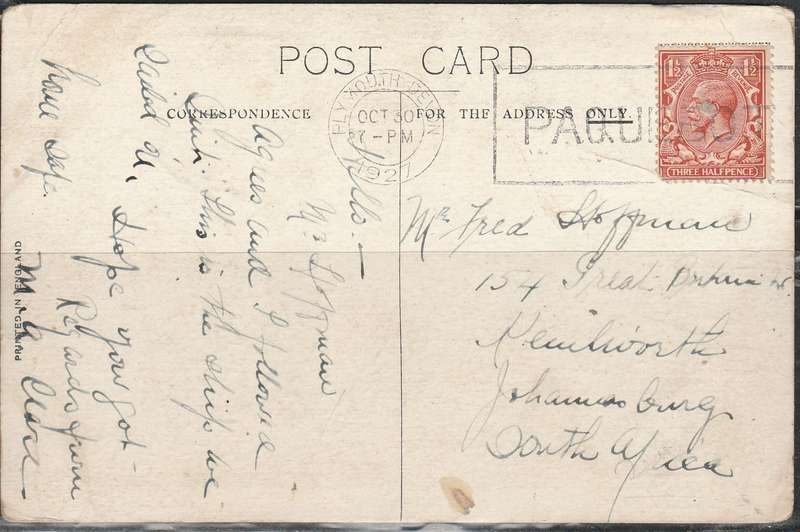 POST CARD
CORRESPONDENCE
FOR THE ADDRESS ONLY.
PLYMOUTH DEVON
OCT 30
7-PM
1927
PAQUEBOT
1½ 1½
POSTAGE REVENUE
THREE HALFPENCE
Hello:—
Mr Hoffman
Agnes and I followed
suit. This is the ship we
sailed on. Hope you got
home safe. Regards from
M. A. Clare
Mr Fred Hoffman
154 Great Britain St.
Kenilworth
Johannesburg
South Africa
PRINTED IN ENGLAND